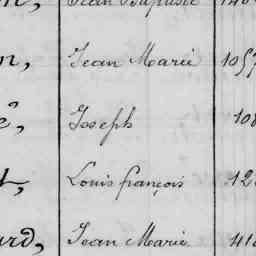 Jean Baptiste
n, Jean Marie 1057
e, Joseph 108
t, Louis françois 12
ard, Jean Marie 41